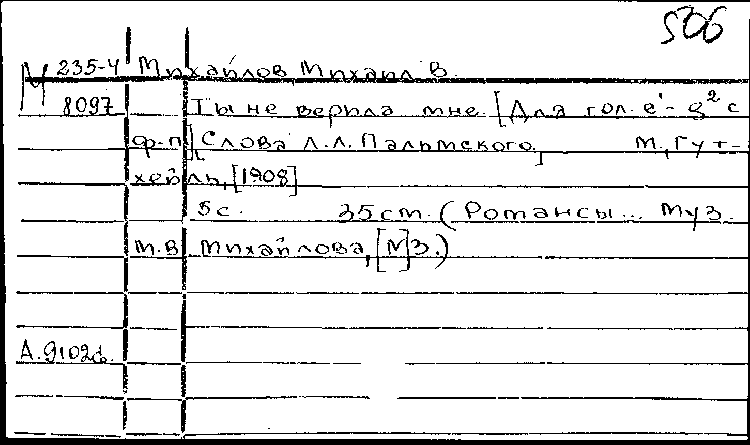 506
М 235-4 Михайлов, Михаил В.
8097 Ты не верила мне. [Для гол. e¹-g² с
ф-п.] [Слова Л.Л. Пальмского.] М., Гут-
хейль, [1908]
5с. 35см. (Романсы... муз.
М.В. Михайлова, [№]3.)